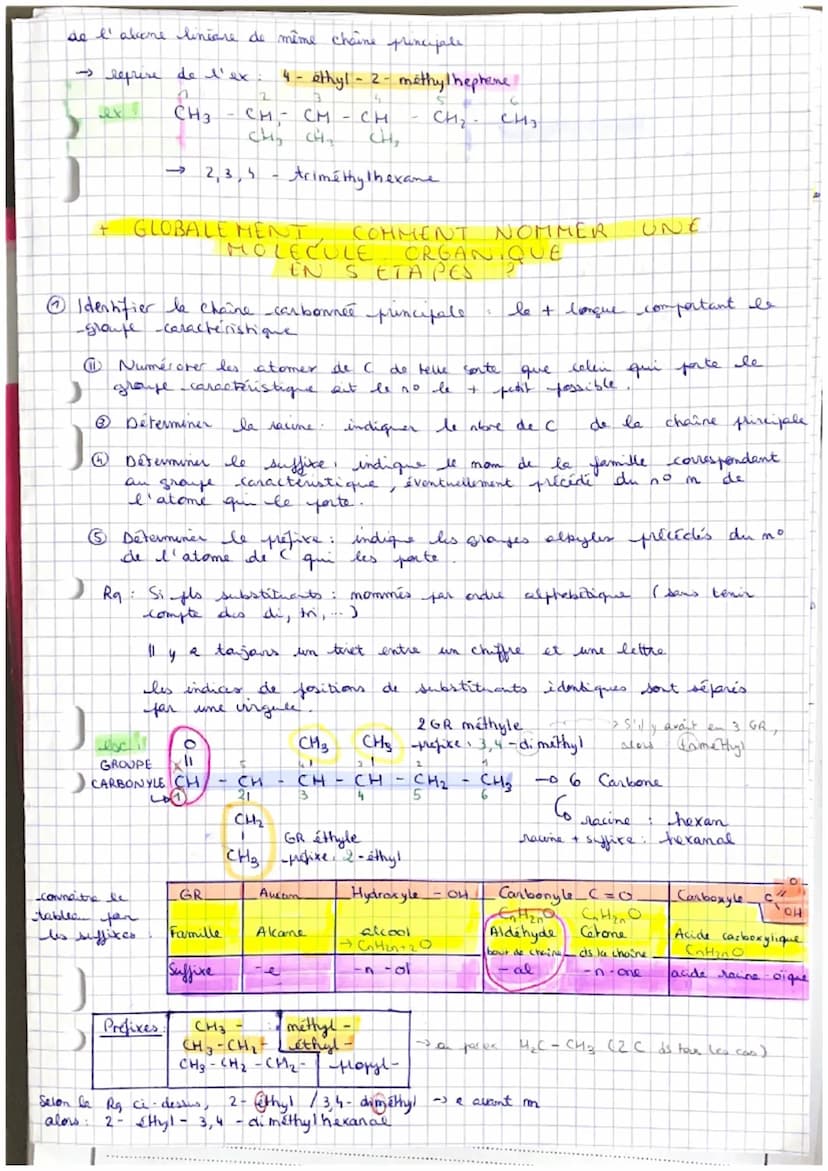 de l'alcane linéaire de même chaîne principale
→ reprise de l'ex : 4 - éthyl - 2 - méthylheptene
1 2 3 4 5 6
ex : CH3 - CH - CH - CH - CH2 - CH3
CH3 CH3 CH3
→ 2,3,4 - triméthylhexane
+ GLOBALEMENT, COMMENT NOMMER UNE
MOLECULE ORGANIQUE
EN 5 ETAPES ?
① Identifier la chaîne carbonnée principale : la + longue comportant le
groupe caractéristique
⑪ Numéroter les atomes de C de telle sorte que celui qui porte le
groupe caractéristique ait le no le + petit possible.
③ Déterminer la racine : indiquer le nbre de C de la chaîne principale
④ Déterminer le suffixe : indique le nom de la famille correspondant
au groupe caractéristique, éventuellement précédé du no n de
l'atome qui le porte.
⑤ Déterminer le préfixe : indique les groupes alkyles précédés du no
de l'atome de C qui les porte.
Rq : Si pls substituants : nommés par ordre alphabétique (sans tenir
compte des di, tri, ...)
Il y a toujours un tiret entre un chiffre et une lettre
les indices de positions de substituants identiques sont séparés
par une virgule.
2 GR méthyle → S'il y avait eu 3 GR,
exc : O CH3 CH3 → préfixe : 3,4 - diméthyl alors triméthyl
GROUPE ||
CARBONYLE CH - CH - CH - CH - CH2 - CH3 → 6 Carbone
1 2 3 4 5 6
CH2 racine : hexan
CH3 GR éthyle racine + suffixe : hexanal
→ préfixe : 2 - éthyl
connaître le tableau par les suffixes :
GR Aucun Hydroxyle - OH Carbonyle C = O Carboxyle C O OH
CnH2nO CnH2nO
Famille Alcane alcool Aldéhyde Cétone Acide carboxylique
→ CnH2n+2O bout de chaîne ds la chaîne CnH2nO
Suffixe - e - n - ol - al - n - one acide racine - oïque
Préfixes : CH3 - : méthyl -
CH3 - CH2 - éthyl - → H2C - CH3 (2C ds tous les cas)
CH3 - CH2 - CH2 - propyl -
Selon la Rq ci-dessus, 2 - éthyl / 3,4 - diméthyl → e avant m
alors : 2 - éthyl - 3,4 - diméthylhexanal